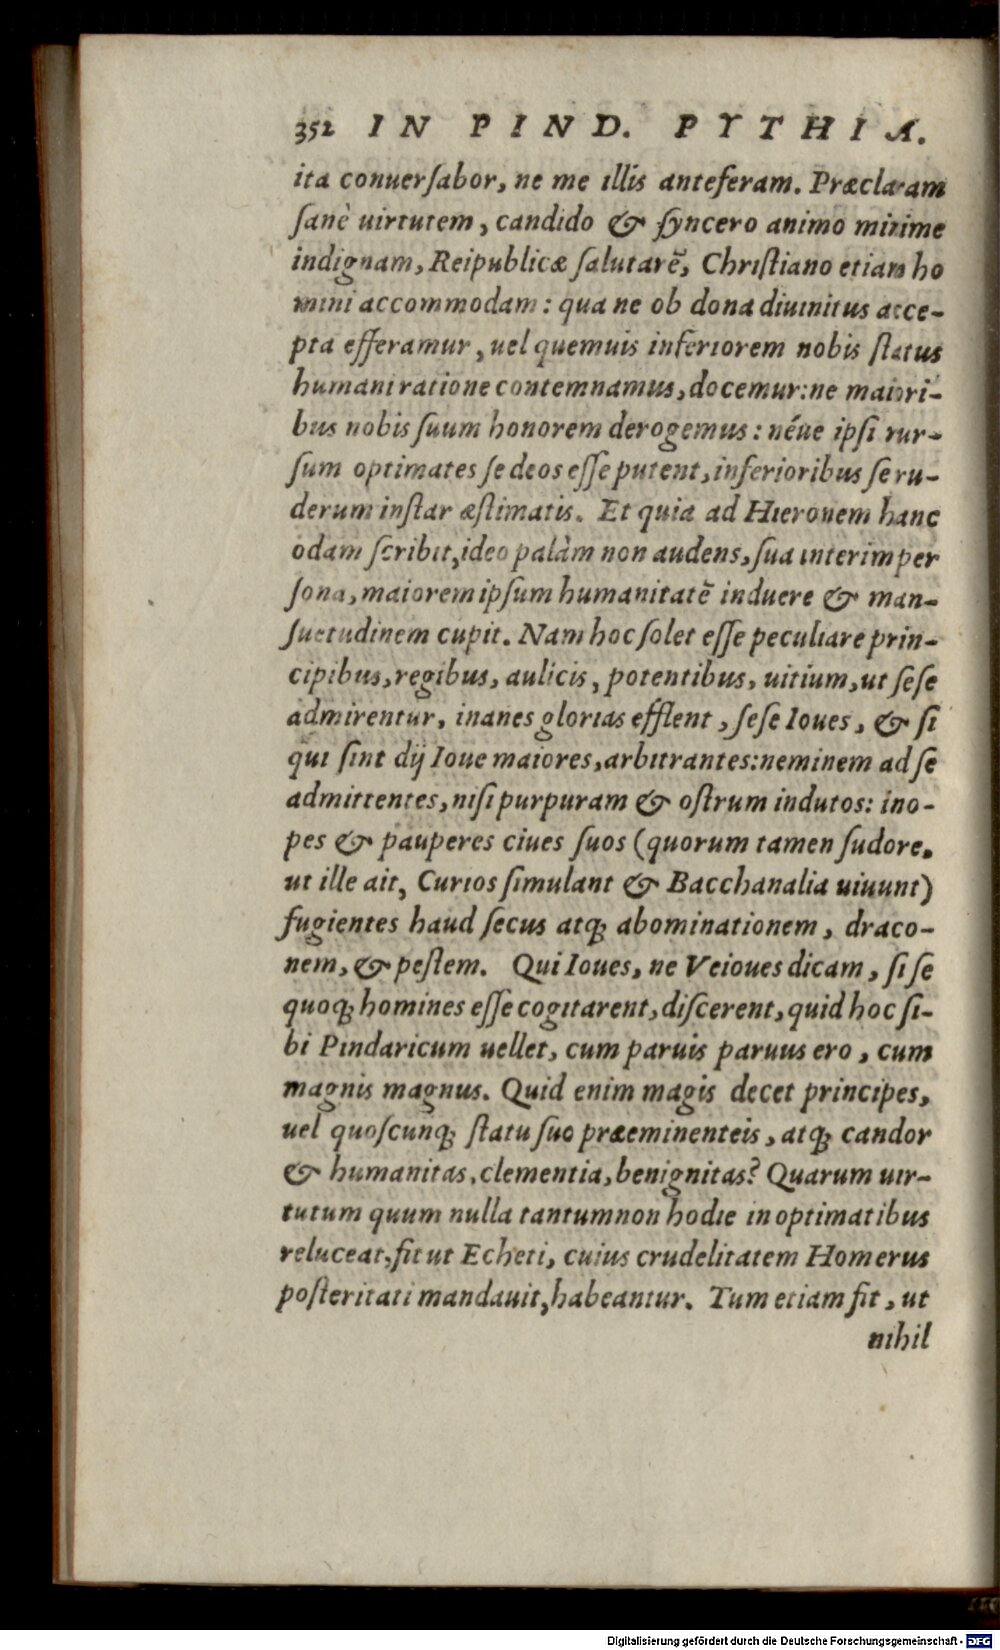 352 IN PIND. PYTHIA.
ita conuerſabor, ne me illis anteferam. Præclaram
ſanè uirtutem, candido & ſyncero animo minime
indignam, Reipublicæ ſalutarē, Chriſtiano etiam ho
mini accommodam: qua ne ob dona diuinitus acce-
pta efferamur, uel quemuis inferiorem nobis ſtatus
humani ratione contemnamus, docemur: ne maiori-
bus nobis ſuum honorem derogemus: néue ipſi rur-
ſum optimates ſe deos eſſe putent, inferioribus ſe ru-
derum inſtar æſtimatis. Et quia ad Hieronem hanc
odam ſcribit, ideo palàm non audens, ſua interim per
ſona, maiorem ipſum humanitatē induere & man-
ſuetudinem cupit. Nam hoc ſolet eſſe peculiare prin-
cipibus, regibus, aulicis, potentibus, uitium, ut ſeſe
admirentur, inanes glorias efflent, ſeſe Ioues, & ſi
qui ſint dij Ioue maiores, arbitrantes: neminem ad ſe
admittentes, niſi purpuram & oſtrum indutos: ino-
pes & pauperes ciues ſuos (quorum tamen ſudore,
ut ille ait, Curios ſimulant & Bacchanalia uiuunt)
fugientes haud ſecus atq; abominationem, draco-
nem, & peſtem. Qui Ioues, ne Veioues dicam, ſi ſe
quoq; homines eſſe cogitarent, diſcerent, quid hoc ſi-
bi Pindaricum uellet, cum paruis paruus ero, cum
magnis magnus. Quid enim magis decet principes,
uel quoſcunq; ſtatu ſuo præeminenteis, atq; candor
& humanitas, clementia, benignitas? Quarum uir-
tutum quum nulla tantumnon hodie in optimatibus
reluceat, fit ut Echeti, cuius crudelitatem Homerus
poſteritati mandauit, habeantur. Tum etiam fit, ut
nihil
Digitalisierung gefördert durch die Deutsche Forschungsgemeinschaft - DFG